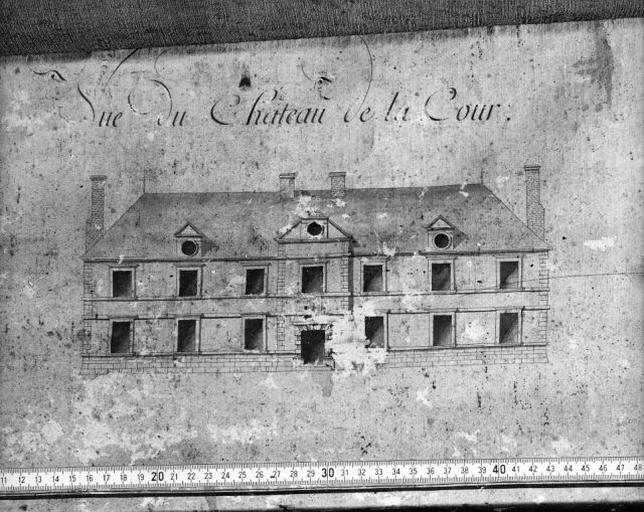 Vue du Château de la Cour.
11 12 13 14 15 16 17 18 19 20 21 22 23 24 25 26 27 28 29 30 31 32 33 34 35 36 37 38 39 40 41 42 43 44 45 46 47 48